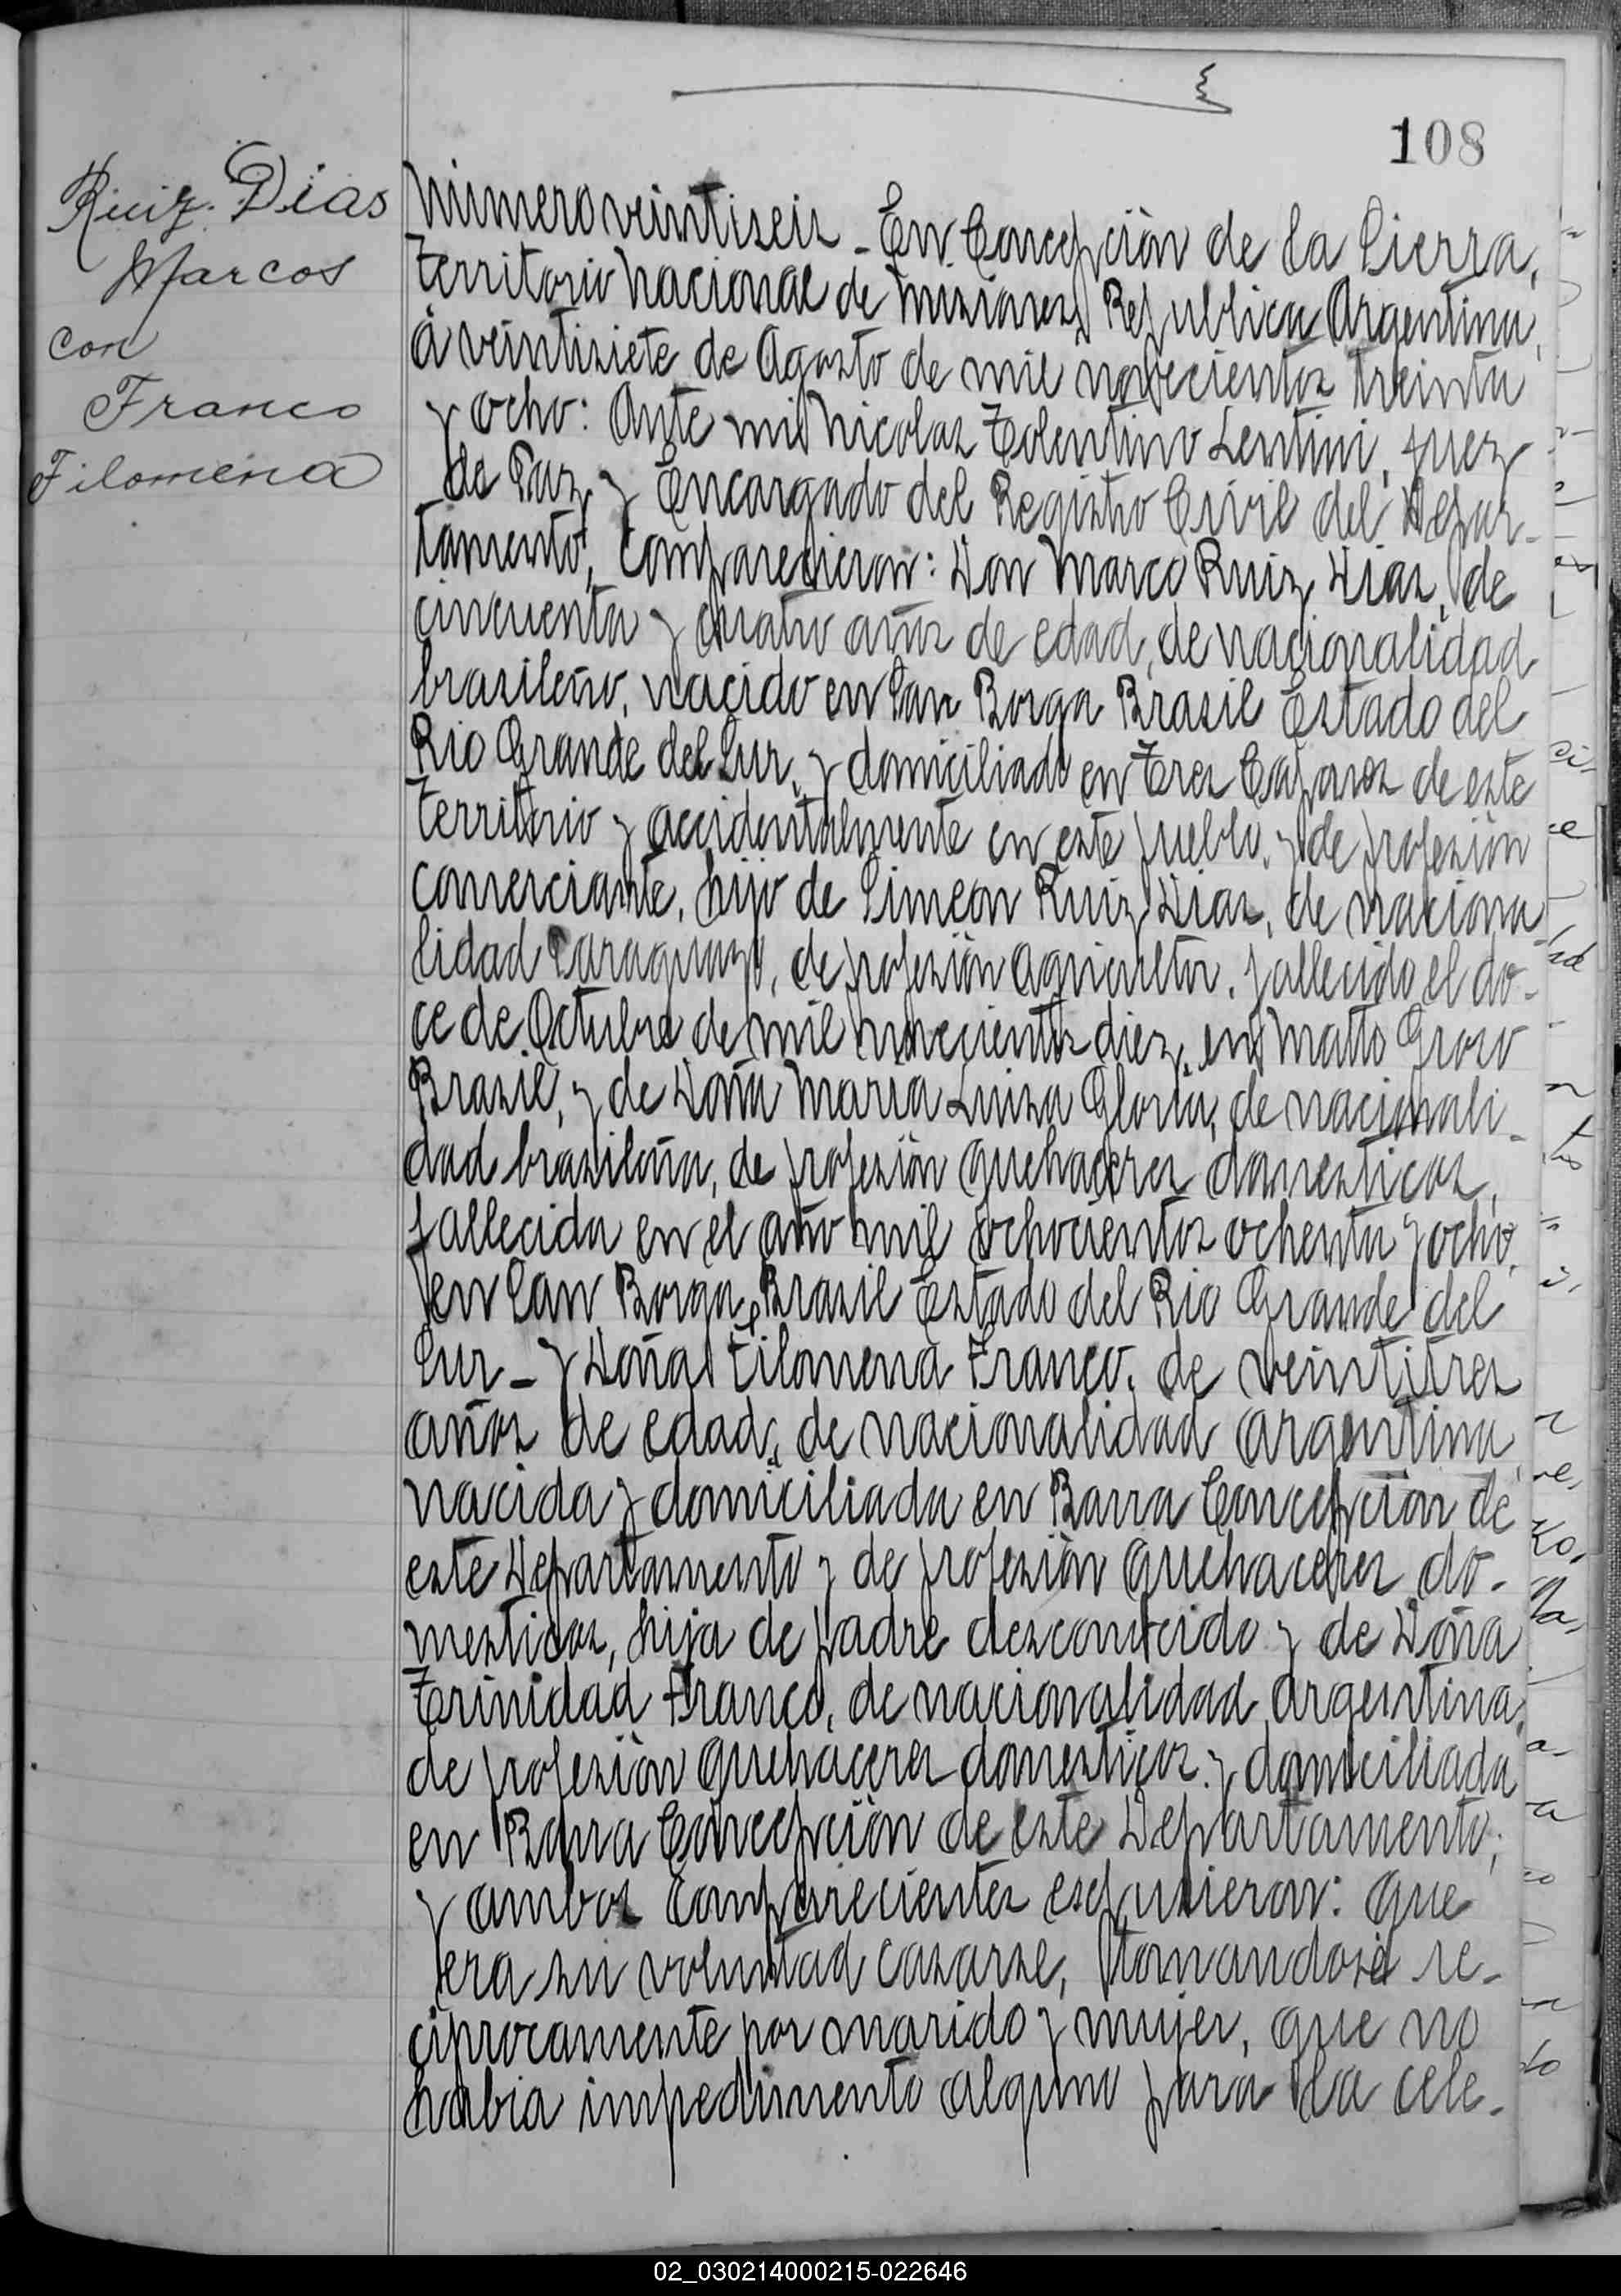 108
Ruiz Dias
Marcos
con
Franco
Filomena
Número veintiseis - En Concepción de la Sierra,
Territorio Nacional de Misiones, Republica Argentina,
á veintisiete de Agosto de mil novecientos treinta
y ocho: Ante mi Nicolas Tolentino Lentini, Juez
de Paz y Encargado del Registro Civil del Depar-
tamento, comparecieron: Don Marco Ruiz Dias, de
cincuenta y cuatro años de edad, de nacionalidad
brasileño, nacido en San Borga Brasil Estado del
Rio Grande del Sur, y domiciliado en Tres Capones de este
Territorio y accidentalmente en este pueblo, y de profesión
comerciante, hijo de Simeon Ruiz Dias, de naciona
lidad Paraguayo, de profesión agricultor, fallecido el do-
ce de Octubre de mil novecientos diez, en Matto Groso
Brasil, y de Doña Maria Luisa Gloria, de nacionali-
dad brasileña, de profesión quehaceres domesticos,
fallecida en el año mil ochocientos ochenta y ocho,
en San Borga, Brasil Estado del Rio Grande del
Sur - y Doña Filomena Franco, de veintitres
años de edad, de nacionalidad argentina,
nacida y domiciliada en Barra Concepción de
este Departamento y de profesión quehaceres do-
mesticos, hija de padre desconocido y de Doña
Trinidad Franco, de nacionalidad argentina,
de profesión quehaceres domesticos y domiciliada
en Barra Concepción de este Departamento;
y ambos comparecientes expusieron: que
era su voluntad casarse, tomandose re-
ciprocamente por marido y mujer, que no
habia impedimento alguno para la cele-
02_030214000215-022646